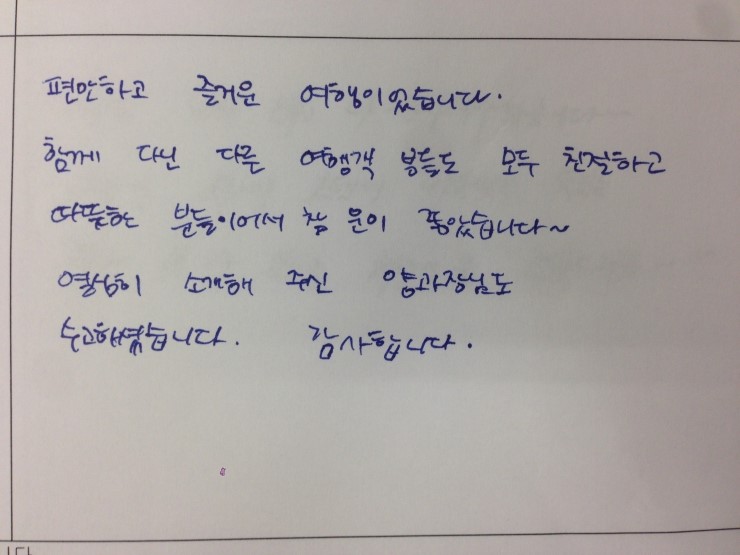 편안하고 즐거운 여행이었습니다.
함께 다닌 다른 여행객 분들도 모두 친절하고
따뜻한 분들이어서 참 운이 좋았습니다~
열심히 소개해 주신 양과장님도
수고하셨습니다. 감사합니다.
니다